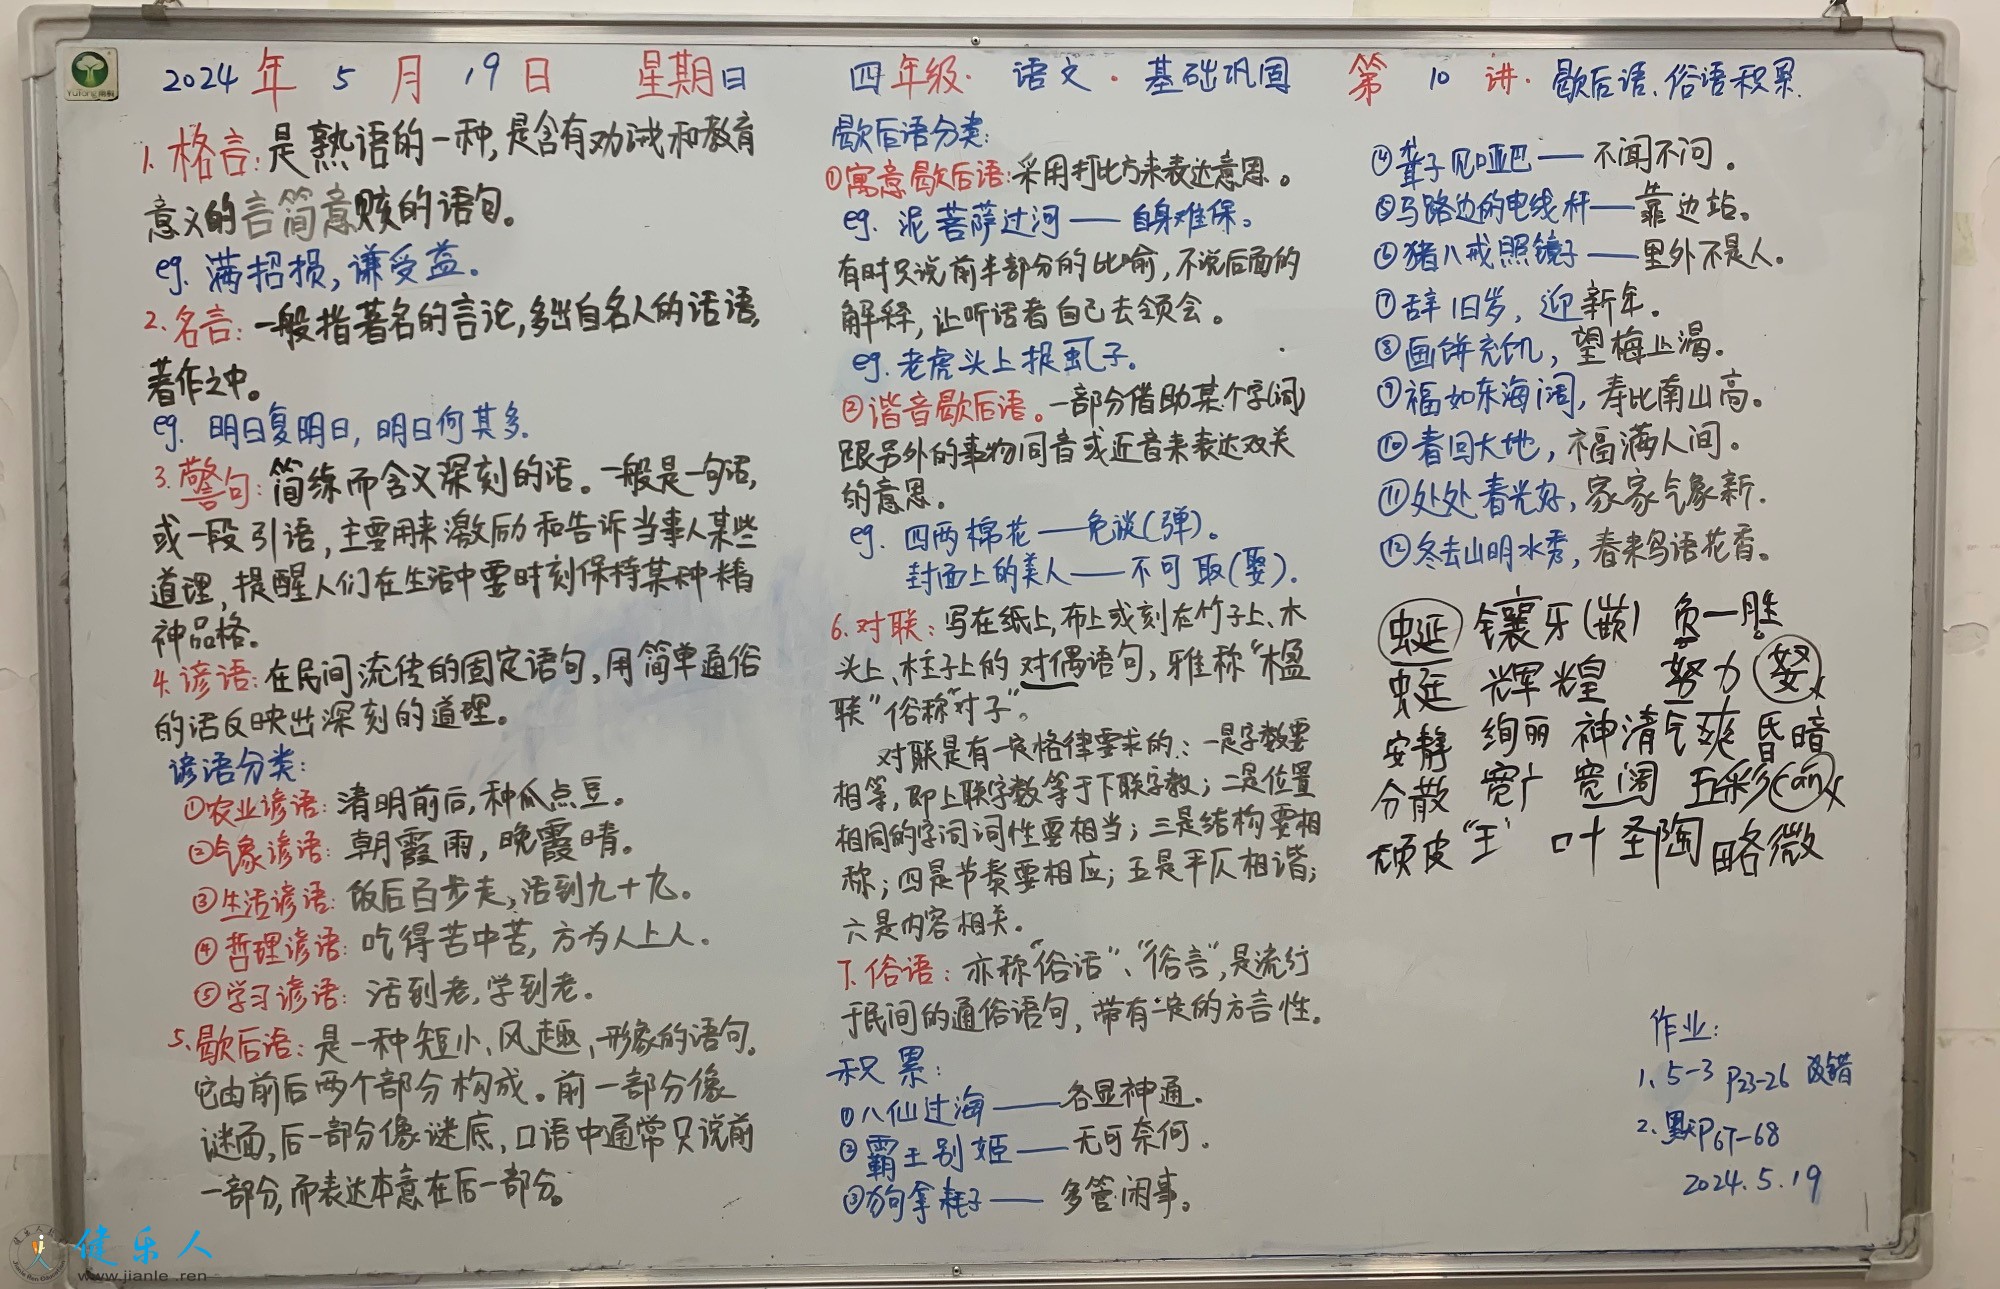 2024年 5月 19日 星期日 四年级·语文·基础巩固 第10讲·歇后语、俗语积累.
1. 格言: 是熟语的一种, 是含有劝诫和教育
意义的言简意赅的语句。
eg. 满招损, 谦受益.
2. 名言: 一般指著名的言论, 多出自名人的话语,
著作之中。
eg. 明日复明日, 明日何其多.
3. 警句: 简练而含义深刻的话。一般是一句话,
或一段引语, 主要用来激励和告诉当事人某些
道理, 提醒人们在生活中要时刻保持某种精
神品格。
4. 谚语: 在民间流传的固定语句, 用简单通俗
的话反映出深刻的道理。
谚语分类:
①农业谚语: 清明前后, 种瓜点豆。
②气象谚语: 朝霞雨, 晚霞晴。
③生活谚语: 饭后百步走, 活到九十九。
④哲理谚语: 吃得苦中苦, 方为人上人.
⑤学习谚语: 活到老, 学到老.
5. 歇后语: 是一种短小、风趣、形象的语句.
它由前后两个部分构成。前一部分像
谜面, 后一部分像谜底, 口语中通常只说前
一部分, 而表达本意在后一部分。
歇后语分类:
①寓意歇后语: 采用打比方来表达意思。
eg. 泥菩萨过河——自身难保。
有时只说前半部分的比喻, 不说后面的
解释, 让听话者自己去领会。
eg. 老虎头上捉虱子.
②谐音歇后语。一部分借助某个字(词)
跟另外的事物同音或近音来表达双关
的意思.
eg. 四两棉花——免谈(弹)。
封面上的美人——不可取(娶).
6. 对联: 写在纸上, 布上或刻在竹子上、木
头上、柱子上的对偶语句, 雅称“楹
联”俗称“对子”。
对联是有一定格律要求的: 一是字数要
相等, 即上联字数等于下联字数; 二是位置
相同的字词词性要相当; 三是结构要相
称; 四是节奏要相应; 五是平仄相谐;
六是内容相关.
7. 俗语: 亦称“俗话”、“俗言”, 是流行
于民间的通俗语句, 带有一定的方言性.
积累:
①八仙过海——各显神通.
②霸王别姬——无可奈何.
③狗拿耗子——多管闲事。
④聋子见哑巴——不闻不问。
⑤马路边的电线杆——靠边站。
⑥猪八戒照镜子——里外不是人。
⑦辞旧岁, 迎新年.
⑧画饼充饥, 望梅止渴.
⑨福如东海阔, 寿比南山高。
⑩春回大地, 福满人间.
⑪处处春光好, 家家气象新.
⑫冬去山明水秀, 春来鸟语花香。
蜒 镶牙(嵌) 负一胜
蜓 辉煌 努力 婺
安静 绚丽 神清气爽 昏暗
分散 宽广 宽阔 五彩 can
顽皮“王” 叶圣陶 略微
作业:
1. 5-3 P23-26 改错
2. 默P67-68
2024.5.19
健乐人
www.jianle.ren